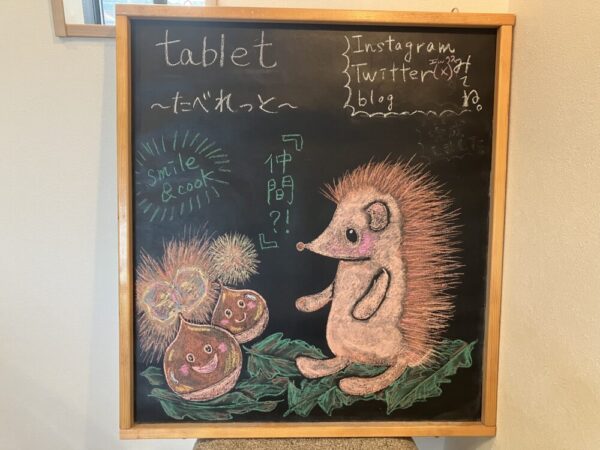 tablet
～たべれっと～
Instagram
Twitter(X)
blog
みてね。
smile
&cook
『仲間?!』